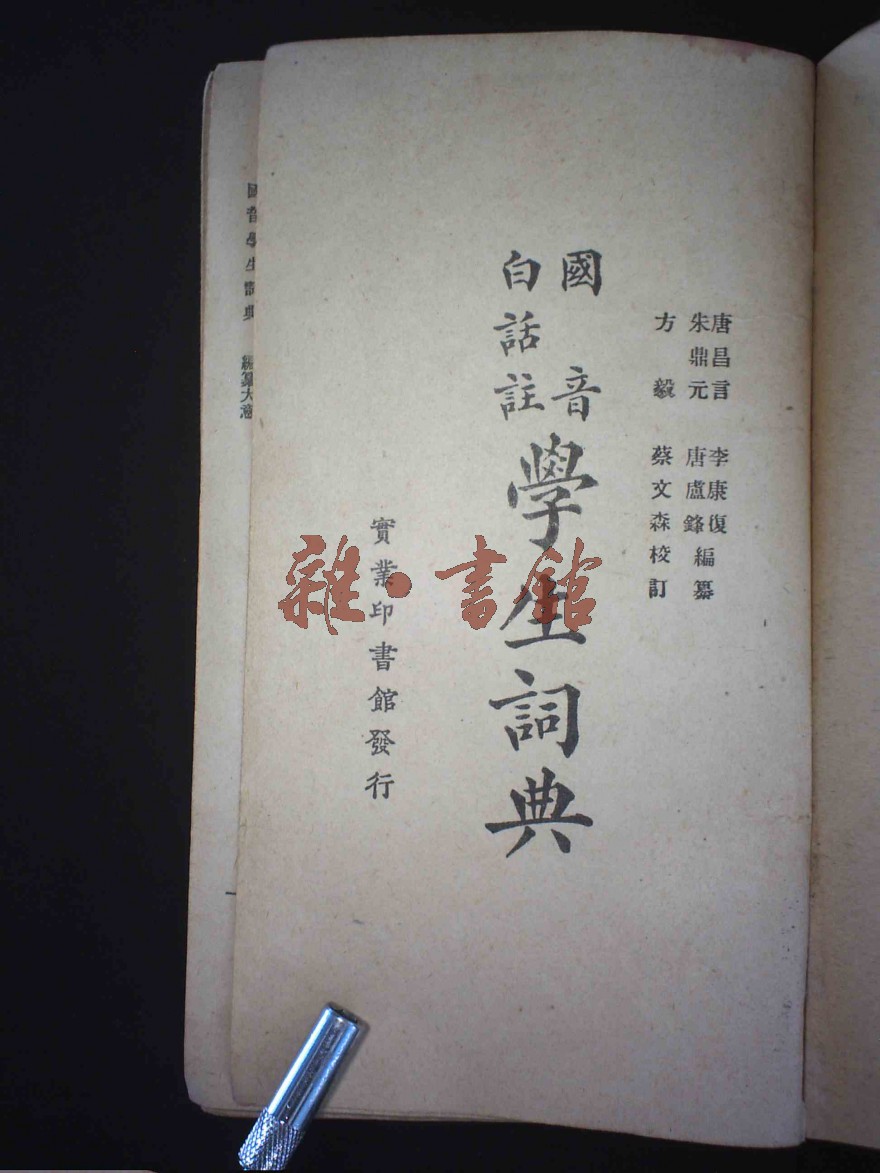 唐昌言 李康復
朱鼎元 唐盧鋒 編纂
方毅 蔡文森校訂
國音
白話註
學生詞典
實業印書館發行
雜·書館
國音學生詞典 編纂大意
一